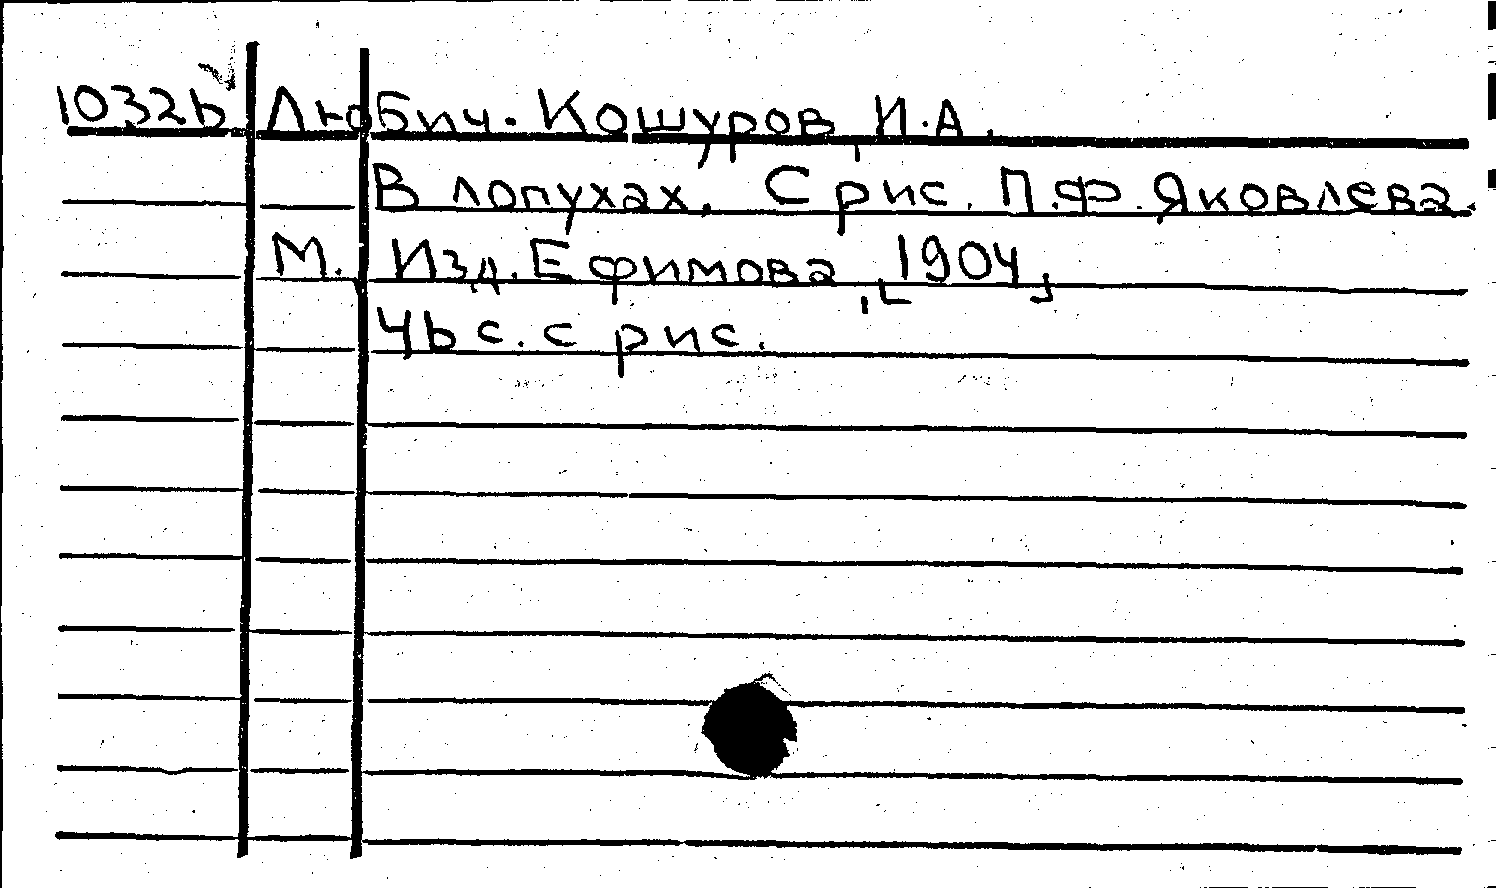 10326 Любич-Кошуров, И.А.
В лопухах. С рис. П.Ф. Яковлева.
М. Изд. Ефимова, [1904]
46 с. с рис.